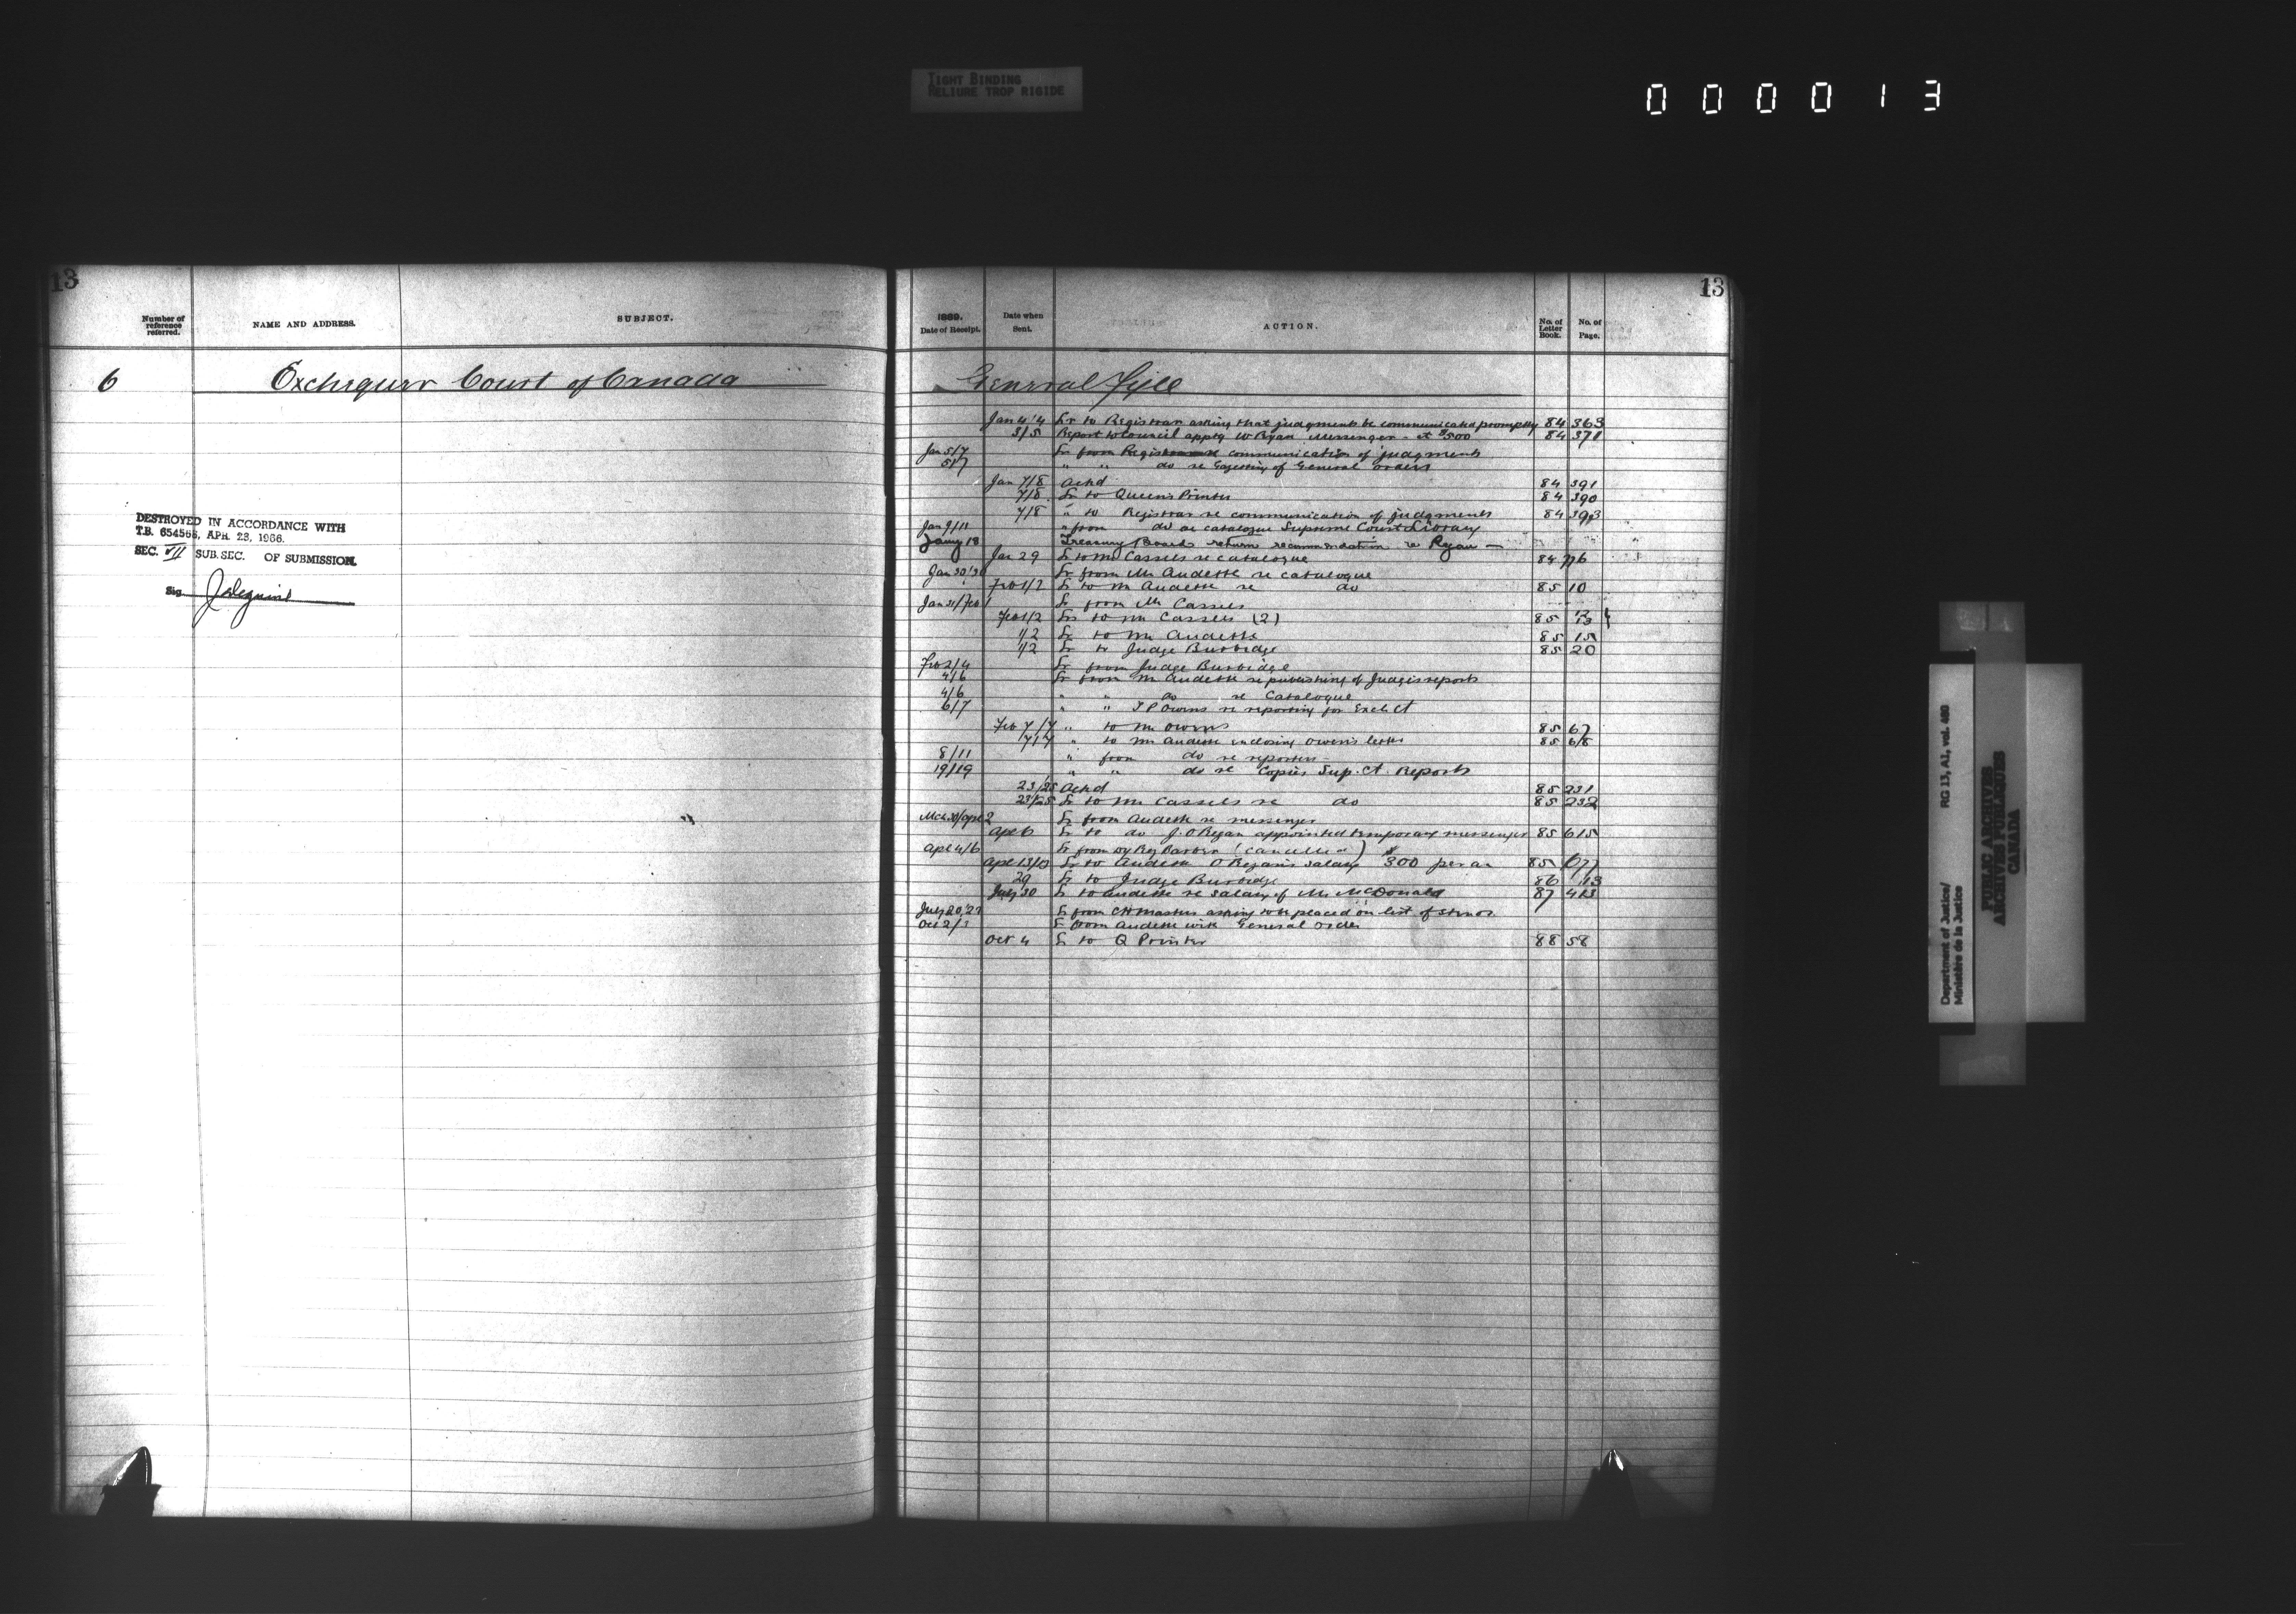 TIGHT BINDING
RELIURE TROP RIGIDE
000013
13
Number of reference referred. NAME AND ADDRESS. SUBJECT.
6 Exchequer Court of Canada
DESTROYED IN ACCORDANCE WITH
T.B. 654568, APR. 23, 1966.
SEC. VII SUB. SEC. OF SUBMISSION.
Sig
13
1889. Date of Receipt. Date when Sent. ACTION. No. of Letter Book. No. of Page.
General Fyle
Jan 4/4 Lr to Registrar asking that judgments be communicated promptly 84 363
3/5 Report to Council apptg W Ryan Messenger - at $500 84 371
Jan 5/7 Lr from Registrar re communication of judgments
5/7 " " do re Gazetting of General orders
Jan 7/8 Ackd 84 391
7/8 Lr to Queen's Printer 84 390
7/8 " to Registrar re communication of judgments 84 393
Jan 9/11 " from do re catalogue Supreme Court Library
Jany 18 Treasury Board return recommendation re Ryan —
Jan 29 Lr to Mr Cassels re catalogue 84
Jan 30/31 Lr from Mr Audette re catalogue
Feb 1/2 Lr to Mr Audette re do 85 10
Jan 31/Feb 1 Lr from Mr Cassels
Feb 1/2 Lrs to Mr Cassels (2) 85 12 13
1/2 Lr to Mr Audette 85 15
1/2 Lr to Judge Burbidge 85 20
Feb 2/4 Lr from Judge Burbidge
4/6 Lr from Mr Audette re publishing of Judges reports
4/6 " " do re Catalogue
6/7 " " T P Owens re reporting for Exch Ct
Feb 7/7 " to Mr Owens 85 67
7/7 " to Mr Audette enclosing Owen's letter 85 68
8/11 " from do re reporters
19/19 " " do re Copies Sup. Ct. Reports
23/25 Ackd 85 231
23/25 Lr to Mr Cassels re do 85 232
Mch 30/Apl 2 Lr from Audette re messenger
Apl 6 Lr to do J. O'Regan appointed temporary messenger 85 615
Apl 4/6 Lr from Dy Reg (cancelled)
Apl 13/13 Lr to Audette O'Regan's salary $300 per an 85 677
29 Lr to Judge Burbidge 86 113
July 30 Lr to Audette re salary of Mr McDonald 87 413
July 20/27 Lr from C H Masters asking to be placed on list of stenos
Oct 2/3 Lr from Audette with General order
Oct 4 Lr to Q Printer 88 58
Department of Justice/
Ministère de la Justice
RG 13, A1, vol. 480
PUBLIC ARCHIVES
ARCHIVES PUBLIQUES
CANADA